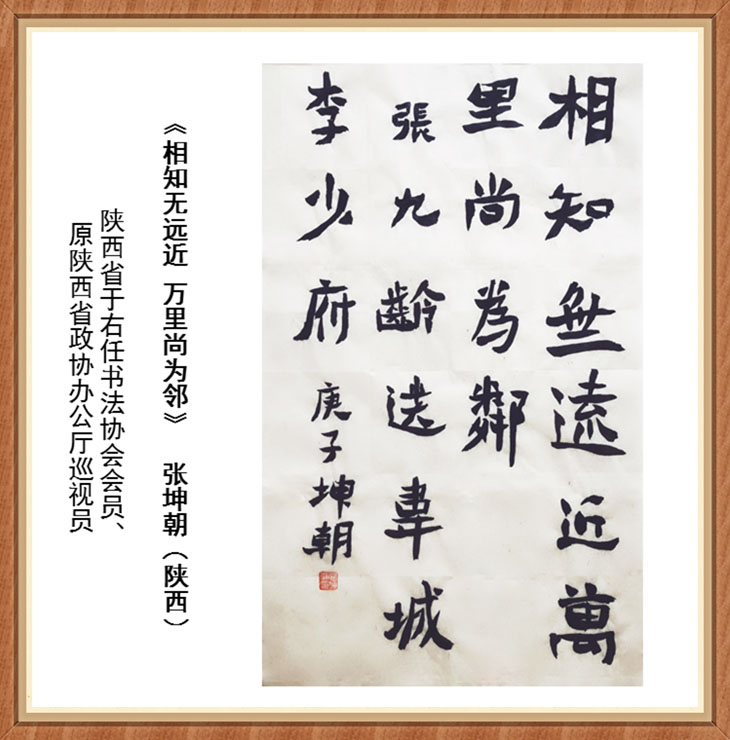 相知無遠近萬
里尚為鄰
張九齡送韋城
李少府 庚子坤朝
《相知无远近 万里尚为邻》 张坤朝（陕西）
陕西省于右任书法协会会员、
原陕西省政协办公厅巡视员